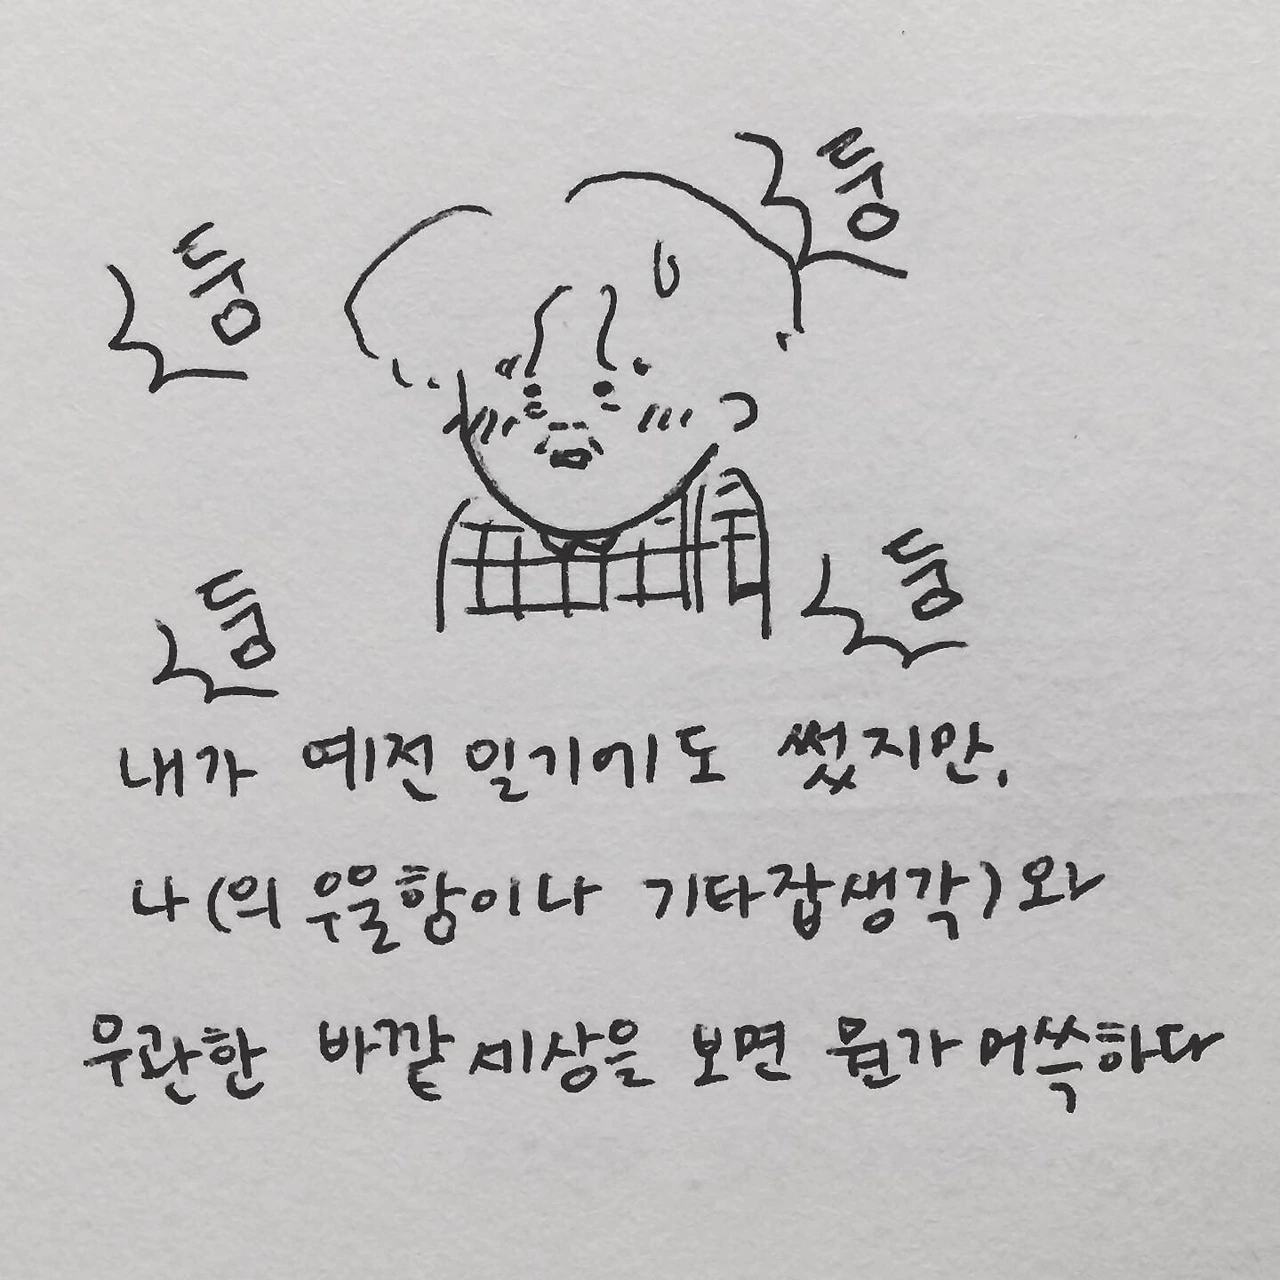 내가 예전 일기에도 썼지만,
나(의 우울함이나 기타잡생각)와
무관한 바깥 세상을 보면 뭔가 머쓱하다